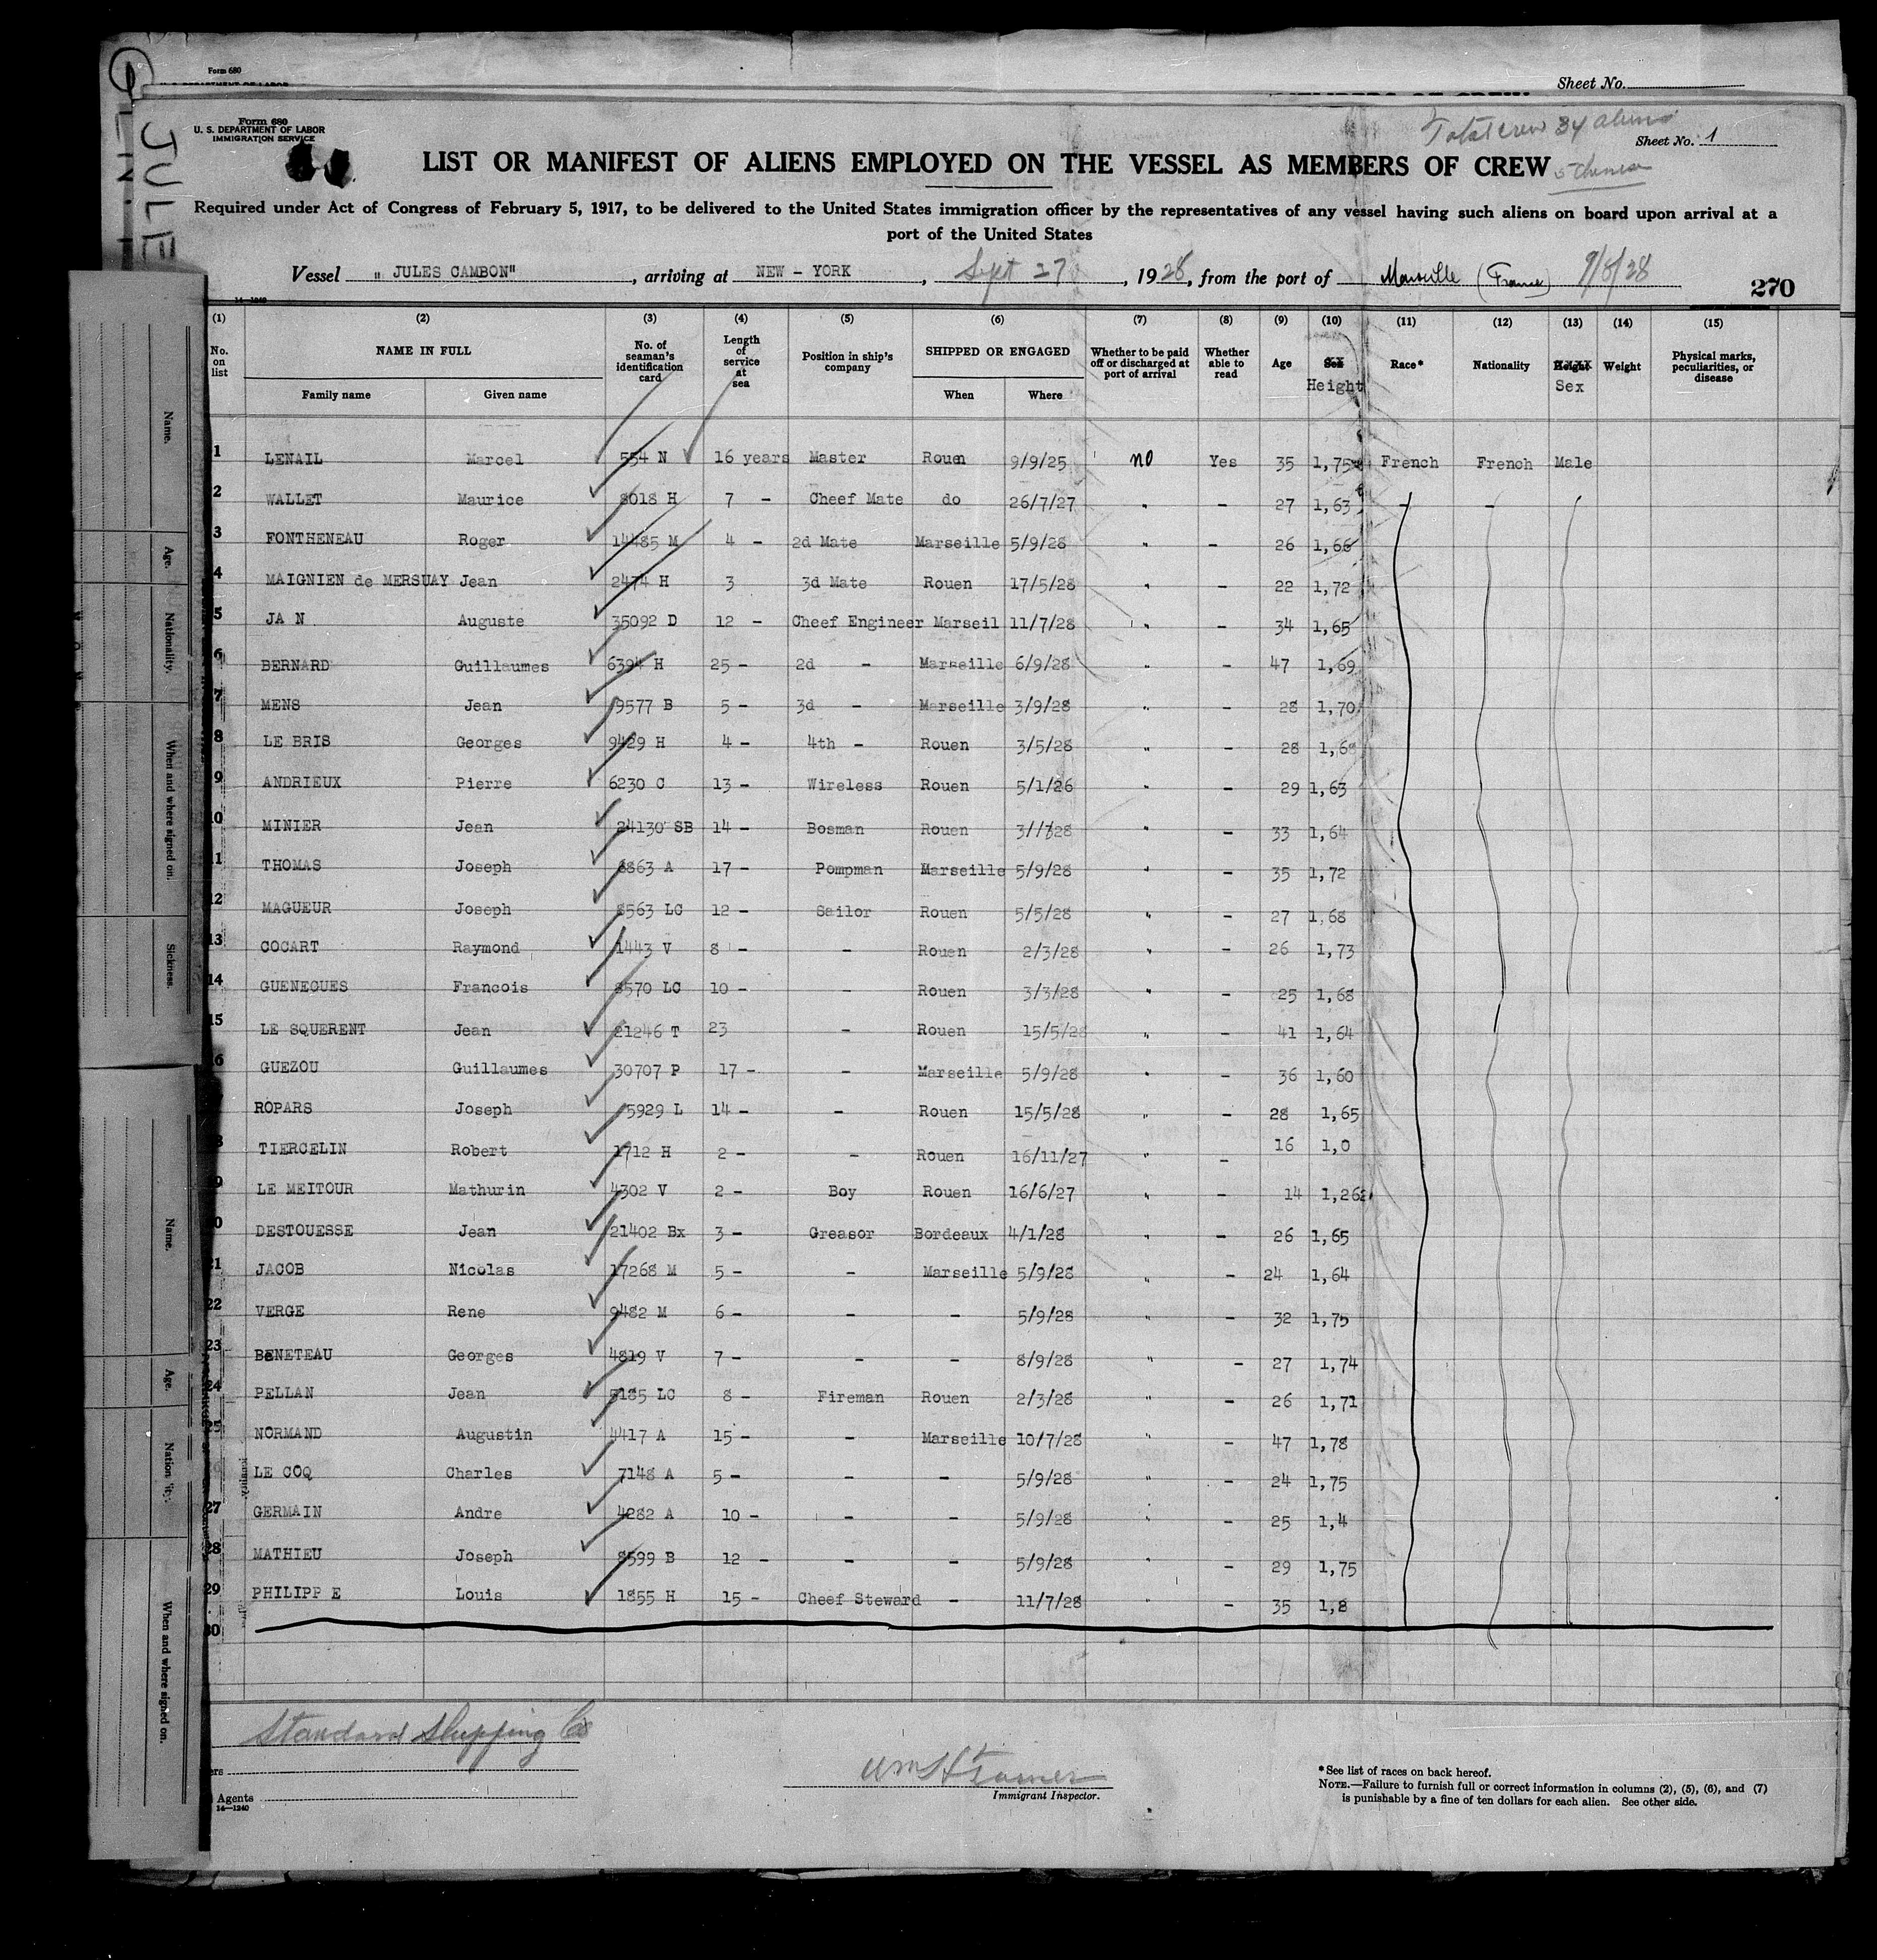 Form 680
Sheet No.
Form 680
U. S. DEPARTMENT OF LABOR
IMMIGRATION SERVICE
JULE
Total crew 34 aliens
Sheet No. 1
LIST OR MANIFEST OF ALIENS EMPLOYED ON THE VESSEL AS MEMBERS OF CREW
5 Chinese
Required under Act of Congress of February 5, 1917, to be delivered to the United States immigration officer by the representatives of any vessel having such aliens on board upon arrival at a
port of the United States
Vessel "JULES CAMBON", arriving at NEW - YORK, Sept 27, 1928, from the port of Marseille (France) 9/8/28
270
14-1240
(1) (2) (3) (4) (5) (6) (7) (8) (9) (10) (11) (12) (13) (14) (15)
No. on list NAME IN FULL No. of seaman's identification card Length of service at sea Position in ship's company SHIPPED OR ENGAGED Whether to be paid off or discharged at port of arrival Whether able to read Age Sex Height Race* Nationality Height Sex Weight Physical marks, peculiarities, or disease
Family name Given name When Where
1 LENAIL Marcel 554 N 16 years Master Rouen 9/9/25 no Yes 35 1,75 French French Male
2 WALLET Maurice 8018 H 7 - Cheef Mate do 26/7/27 " - 27 1,63 - -
3 FONTHENEAU Roger 14485 M 4 - 2d Mate Marseille 5/9/28 " - 26 1,66
4 MAIGNIEN de MERSUAY Jean 2474 H 3 3d Mate Rouen 17/5/28 " - 22 1,72
5 JA N Auguste 35092 D 12 - Cheef Engineer Marseil 11/7/28 " - 34 1,65
6 BERNARD Guillaumes 6394 H 25 - 2d - Marseille 6/9/28 " - 47 1,69
7 MENS Jean 9577 B 5 - 3d - Marseille 3/9/28 " - 28 1,70
8 LE BRIS Georges 9429 H 4 - 4th - Rouen 3/5/28 " - 28 1,68
9 ANDRIEUX Pierre 6230 C 13 - Wireless Rouen 5/1/26 " - 29 1,63
10 MINIER Jean 24130 SB 14 - Bosman Rouen " - 33 1,64
11 THOMAS Joseph 6863 A 17 - Pompman Marseille 5/9/28 " - 35 1,72
12 MAGUEUR Joseph 8563 LC 12 - Sailor Rouen 5/5/28 " - 27 1,68
13 COCART Raymond 1443 V 8 - - Rouen 2/3/28 " - 26 1,73
14 GUENEGUES Francois 8570 LC 10 - - Rouen 3/3/28 " - 25 1,68
15 LE SQUERENT Jean 21246 T 23 - Rouen 15/5/28 " - 41 1,64
6 GUEZOU Guillaumes 30707 P 17 - - Marseille 5/9/28 " - 36 1,60
ROPARS Joseph 5929 L 14 - - Rouen 15/5/28 " - 28 1,65
8 TIERCELIN Robert 1712 H 2 - - Rouen 16/11/27 " - 16 1,0
9 LE MEITOUR Mathurin 4302 V 2 - Boy Rouen 16/6/27 " - 14 1,262
0 DESTOUESSE Jean 21402 Bx 3 - Greasor Bordeaux 4/1/28 " - 26 1,65
21 JACOB Nicolas 17268 M 5 - - Marseille 5/9/28 " - 24 1,64
22 VERGE Rene 9482 M 6 - - - 5/9/28 " - 32 1,75
23 BENETEAU Georges 4819 V 7 - - - 8/9/28 " - 27 1,74
24 PELLAN Jean 5185 LC 8 - Fireman Rouen 2/3/28 " - 26 1,71
25 NORMAND Augustin 4417 A 15 - - Marseille 10/7/28 " - 47 1,78
LE COQ Charles 7148 A 5 - - - 5/9/28 " - 24 1,75
27 GERMAIN Andre 4282 A 10 - - - 5/9/28 " - 25 1,4
28 MATHIEU Joseph 8599 B 12 - - - 5/9/28 " - 29 1,75
29 PHILIPP E Louis 1855 H 15 - Cheef Steward - 11/7/28 " - 35 1,8
30
Standard Shipping Co
Immigrant Inspector.
Agents
14-1240
*See list of races on back hereof.
NOTE.—Failure to furnish full or correct information in columns (2), (5), (6), and (7)
is punishable by a fine of ten dollars for each alien. See other side.
Name.
Age.
Nationality.
When and where signed on.
Sickness.
Name.
Age.
Nation 'ity.
When and where signed on.